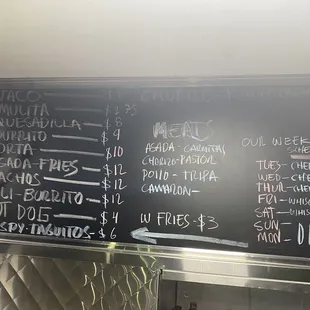 TACO
MULITA 2.75
QUESADILLA - 8
BURRITO 9
TORTA $10
ASADA FRIES 12
NACHOS 12
LI-BURRITO 12
OT DOG $4
SPY TAQUITOS - $6
MEATS
ASADA - CARNITAS
CHORIZO - PASTOR
POLLO - TRIPA
CAMARON -
W FRIES - $3
OUR WEEK
SCHE
TUES - CHE
WED - CHE
THUR - CHE
FRI - WHIS
SAT - WHIS
SUN
MON